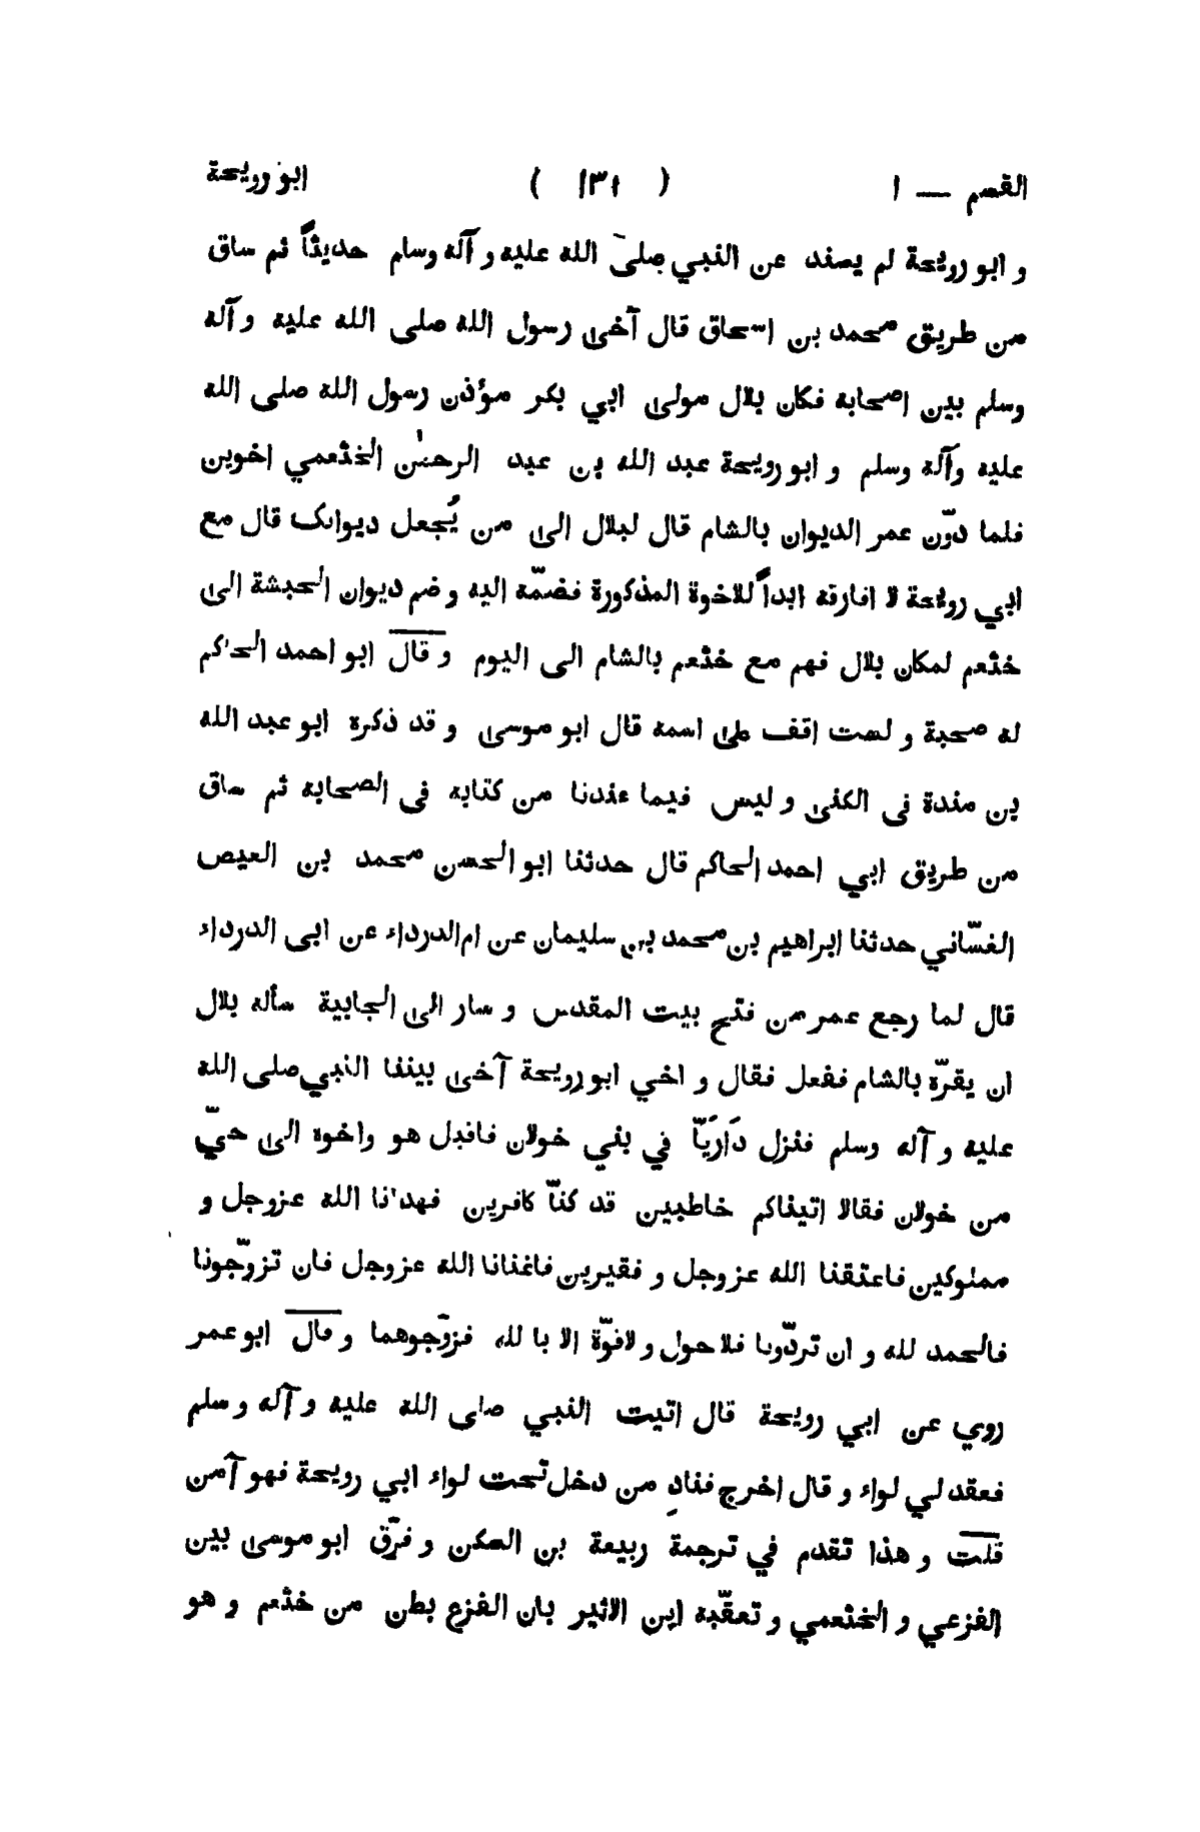 القسم — ١ ( ١٣١ ) ابو رويحة
و ابو رويحة لم يسند عن النبي صلى الله عليه و آله وسلم حديثاً ثم ساق
من طريق محمد بن اسحاق قال آخى رسول الله صلى الله عليه وآله
وسلم بين اصحابه فكان بلال مولى ابي بكر مؤذن رسول الله صلى الله
عليه وآله وسلم و ابو رويحة عبد الله بن عبد الرحمٰن الخثعمي اخوين
فلما دوّن عمر الديوان بالشام قال لبلال الى من يُجعل ديوانك قال مع
ابي رويحة لا افارقه ابداً للاخوة المذكورة فضمّه اليه و ضم ديوان الحبشة الى
خثعم لمكان بلال فهم مع خثعم بالشام الى اليوم و قال ابو احمد الحاكم
له صحبة و لست اقف على اسمه قال ابو موسى و قد ذكره ابو عبد الله
بن مندة فى الكنى و ليس فيما عندنا من كتابه فى الصحابة ثم ساق
من طريق ابي احمد الحاكم قال حدثنا ابو الحسن محمد بن العيص
الغسّاني حدثنا ابراهيم بن محمد بن سليمان عن ام الدرداء عن ابى الدرداء
قال لما رجع عمر من فتح بيت المقدس و سار الى الجابية سأله بلال
ان يقرّه بالشام ففعل فقال و اخي ابو رويحة آخى بيننا النبي صلى الله
عليه و آله وسلم فنزل دَارَيّا في بني خولان فاقبل هو واخوه الى حيّ
من خولان فقالا اتيناكم خاطبين قد كنّا كافرين فهدانا الله عزوجل و
مملوكين فاعتقنا الله عزوجل و فقيرين فاغنانا الله عزوجل فان تزوّجونا
فالحمد لله و ان تردّونا فلا حول و لا قوّة الا بالله فزوّجوهما و قال ابو عمر
روي عن ابي رويحة قال اتيت النبي صلى الله عليه و آله و سلم
فعقد لي لواء و قال اخرج فنادِ من دخل تحت لواء ابي رويحة فهو آمن
قلت و هذا تقدم في ترجمة ربيعة بن السكن و فرّق ابو موسى بين
الفزعي و الخثعمي و تعقّبه ابن الاثير بان الفزع بطن من خثعم و هو